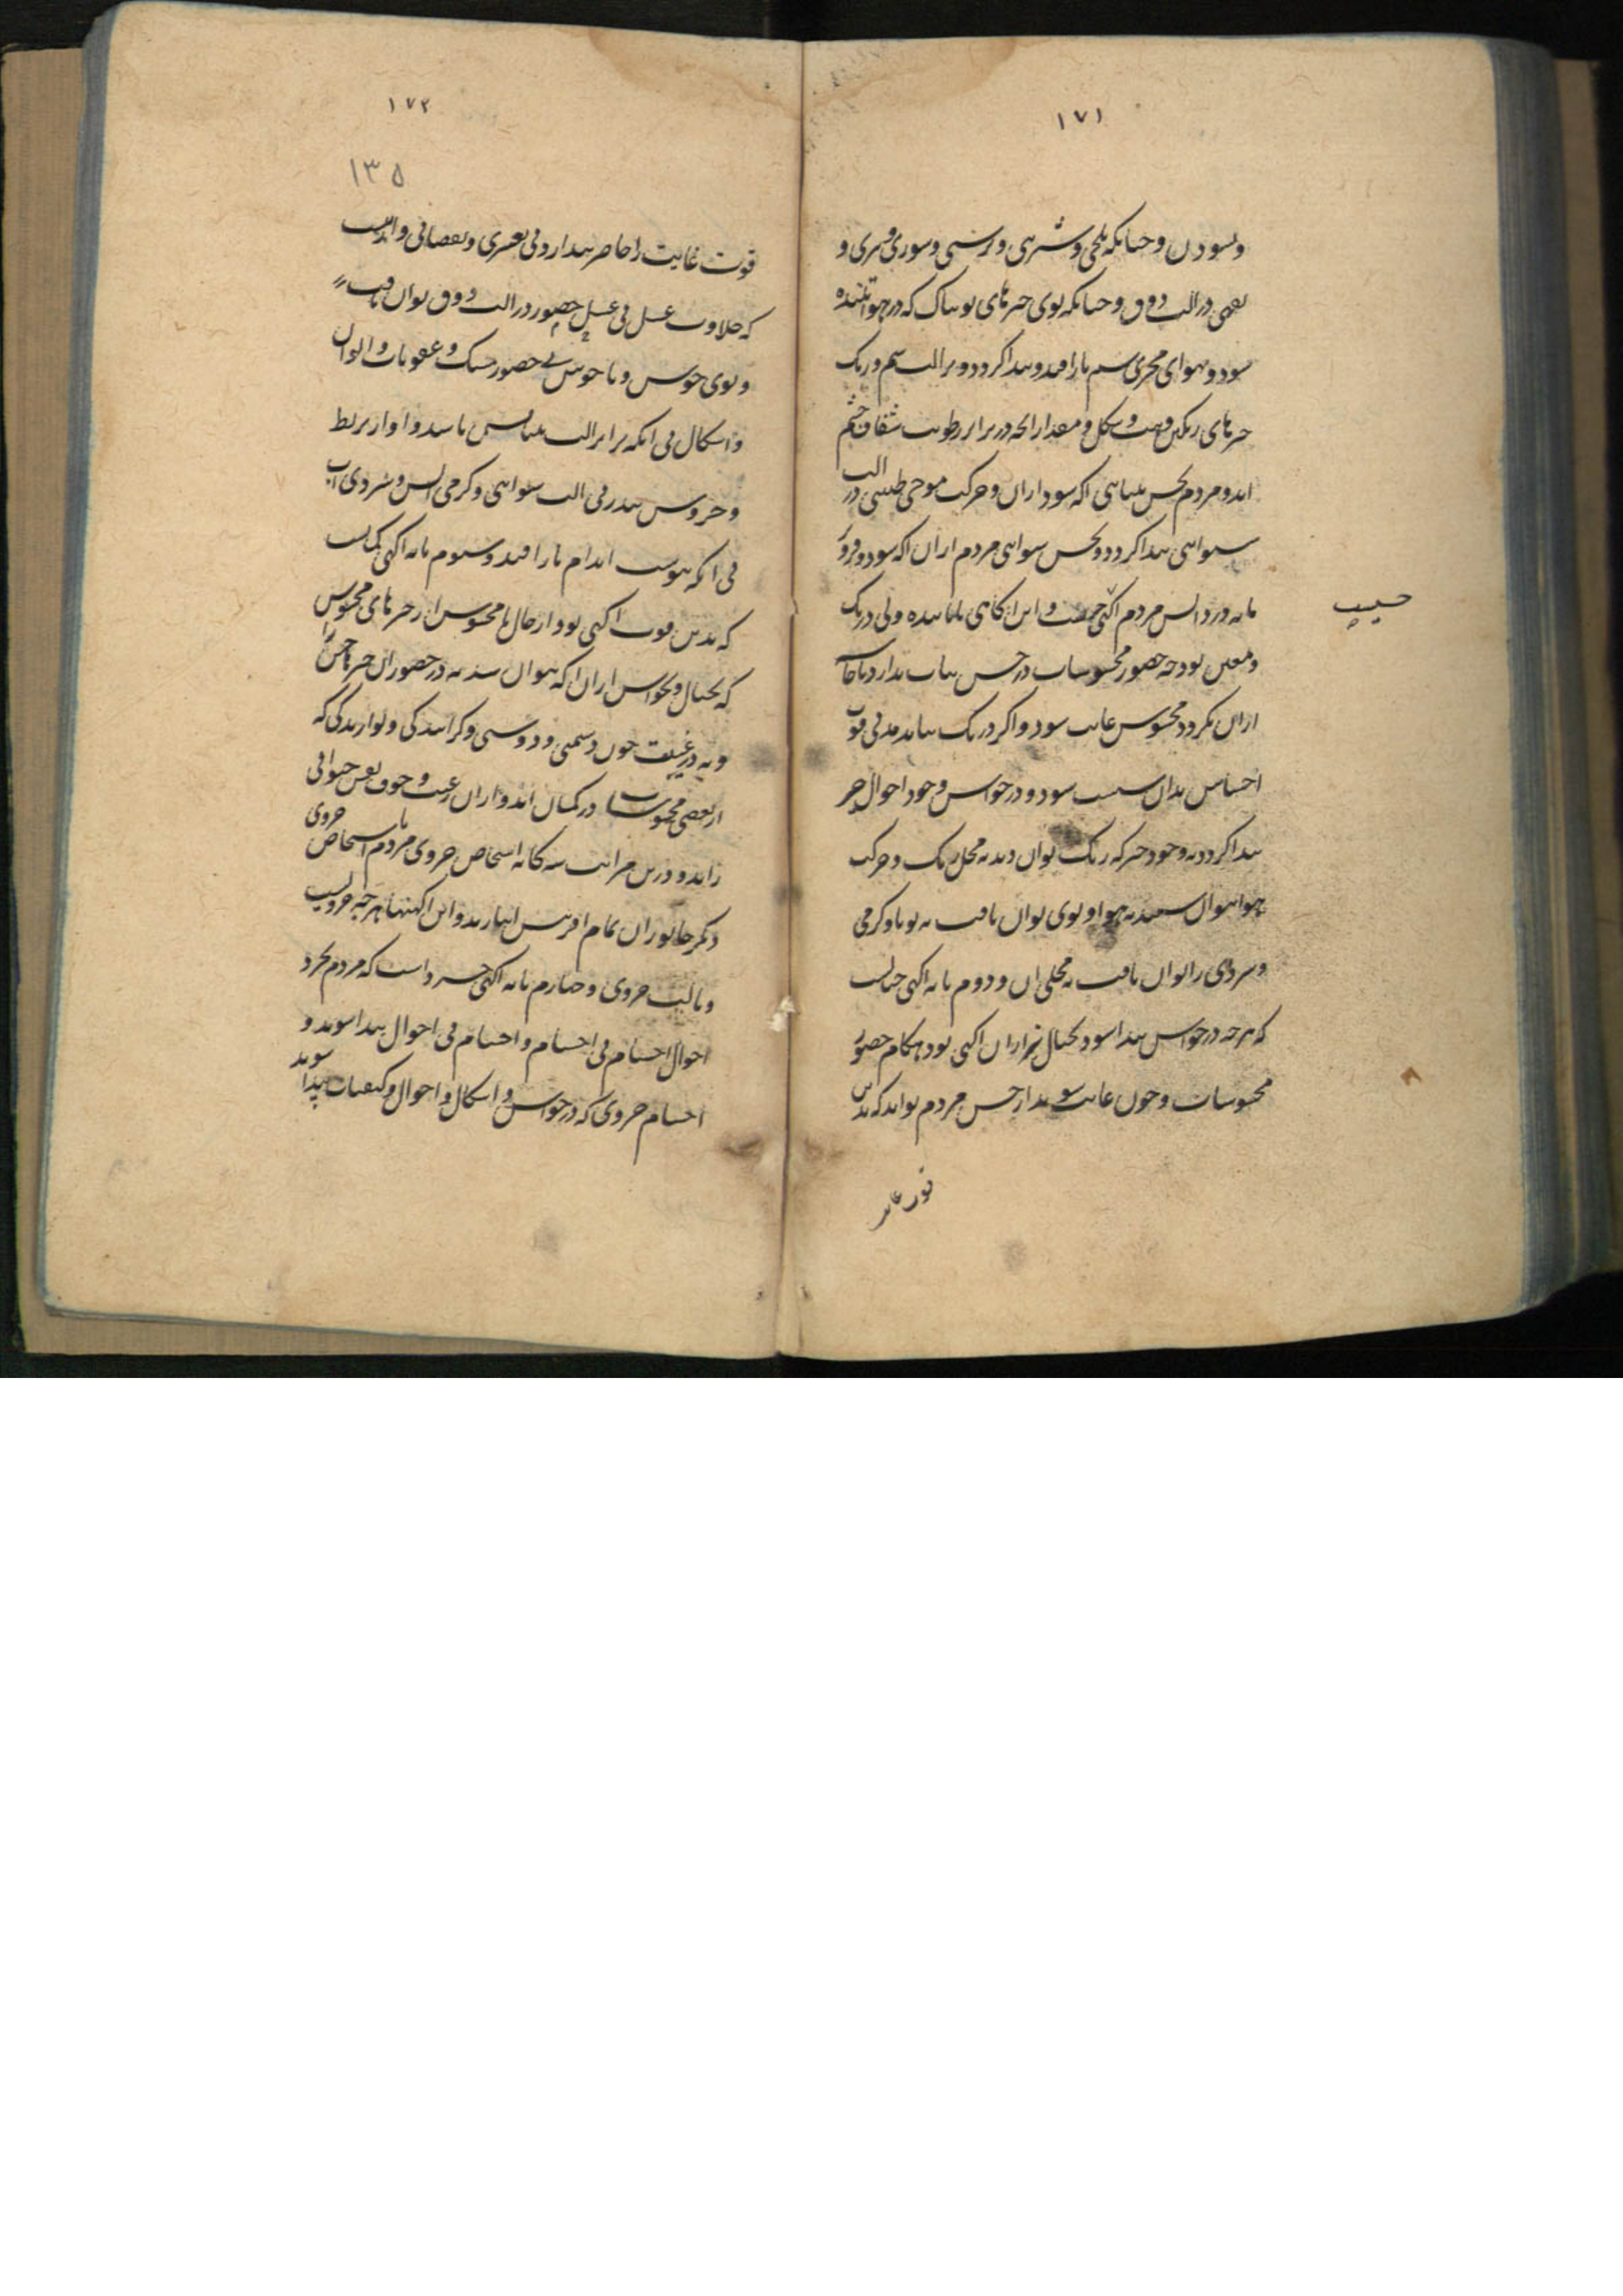 ۱۷۱
وبسودن و چنانکه تلخی و شیرینی و ترشی و شوری و چربی و
بیمزگی در آلت ذوق و چنانکه بوی چیزهای بویناک که در هوا پراکنده
شود و بهوای مجری شم باز افتد و پیدا گردد در آلت شم و رنگ
چیزهای رنگین و هیئت و شکل و مقدار آنچه در برابر رطوبت شفاف چشم
اند و مردم بحس بینایی آگه شود از آن و حرکت موجی
شنوایی پیدا گردد و بحس شنوایی مردم از آن آگه شود و فرود
مایه‌تر در دانش مردم آگهی حسیست و این آگاهی پاینده ولی در یک
حسیست
و معین بود چه حضور محسوسات در حس ثبات ندارد
از آن بگردد محسوس غایب شود و اگر درنگ نیابد بدین قوت
احساس بدان سبب شود و در حواس وجود احوال چیز
پیدا گردد نه وجود چیز که رنگ توان دید نه محل رنگ و حرکت
هوا توان شنید نه هوا و بوی توان یافت نه بویا و گرمی
و سردی را توان یافت نه محل آن و دوم پایه آگهی خیالیست
که هرچه در حواس پیدا شود بخیال نیز از آن آگهی بود هنگام حضور
محسوسات و چون غایب شوند از حس مردم تواند که بدین
قوت غایب
۱۷۲
۱۳۵
قوت غایب را حاضر پندارد بی تغییری و نقصانی و آنست
که حلاوت عسل بی عسل حضور در آلت ذوق توان یافت
و بوی خوش و ناخوش بی حضور مشک و عفونات و الوان
و اشکال بی آنکه برابر آلت بینایی باشد و آواز بربط
و خروس تندر بی آلت شنوایی و گرمی آتش و سردی آب
بی آنکه بپوست اندام باز افتد و سوم پایه آگهی گمانیست
که بدین قوت آگهی بود از حال‌ها محسوس از چیزهای محسوس
که بخیال و بحواس از آن آگه نتوان شد نه در حضور آن چیزها
و نه در غیبت چون دشمنی و دوستی و گزایندگی و نوازندگی که
از بعضی محسوسات در گمان آید و از آن رغبت و خوف نفس حیوانی
زاید و درین مراتب سه‌گانه اشخاص جزوی مردم با اشخاص جزوی
دیگر جانوران تمام آفرینش انبازند و این آگهیها هرچه جزویست
و بآلت جزوی و چهارم پایه آگهی خرد است که مردم بخرد
احوال اجسام بی اجسام و اجسام بی احوال پیدا شوند و
اجسام جزوی که در حواس و اشکال و احوال و کیفیات پیدا شوند